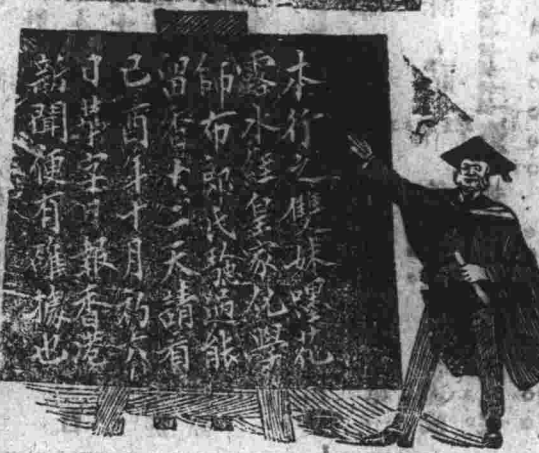 本行之雙妹嘜花
露水經皇家化學
師布郎氏驗過能
留香十三天請看
己酉年十月初六
日華字日報香港
新聞便有確據也